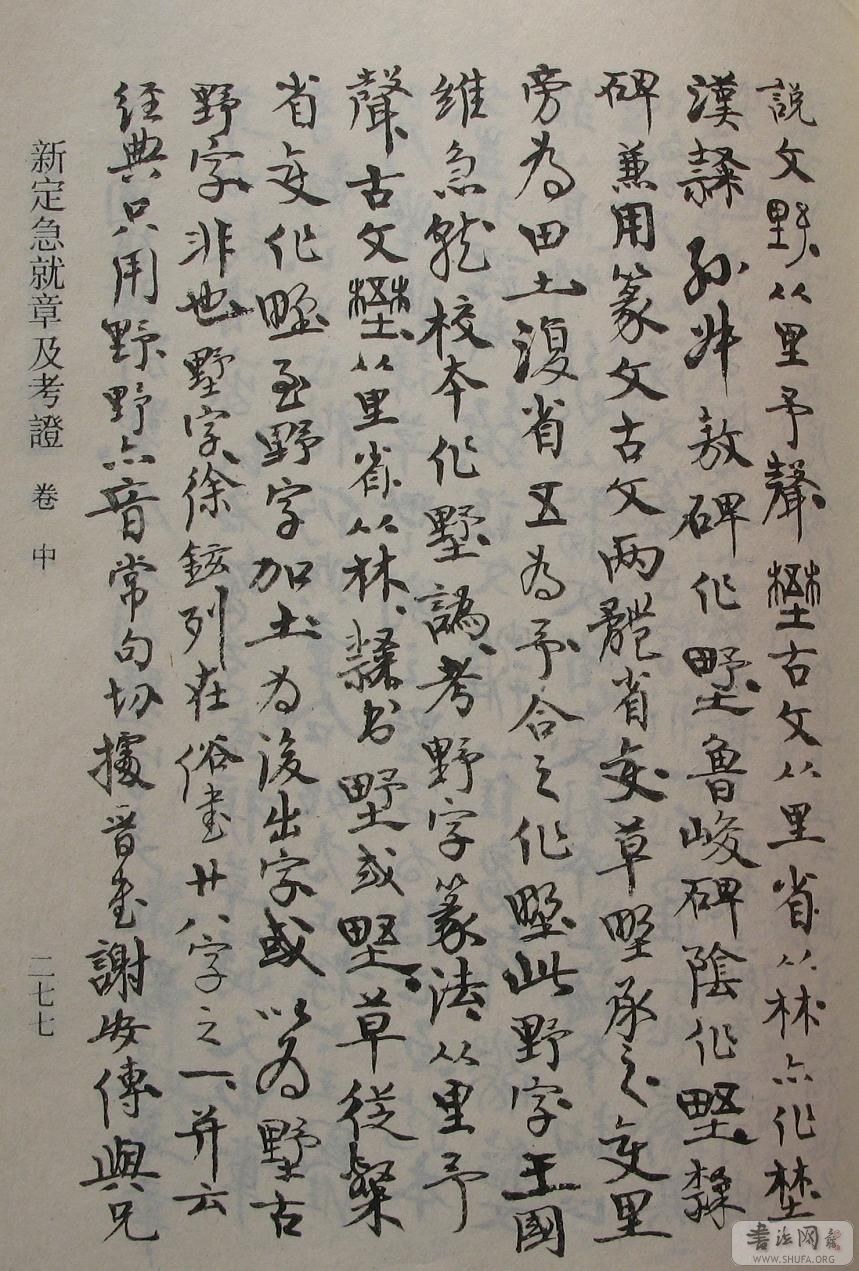 説文野从里予聲壄古文从里省从林亦作埜
漢隸孫叔敖碑作魯峻碑陰作隸
碑兼用篆文古文兩體省變草承之變里
旁為田土復省為予合之作此野字王國
維急就校本作墅譌考野字篆法从里予
聲古文壄从里省从林隸書或草從隸
省變作至野字加土為後出字或以為墅古
野字非也墅字徐鉉列在俗書廿八字之一并云
經典只用野野亦音常句切據晉書謝安傳與兄
新定急就章及考證 卷 中
二七七
书法网
WWW.SHUFA.ORG